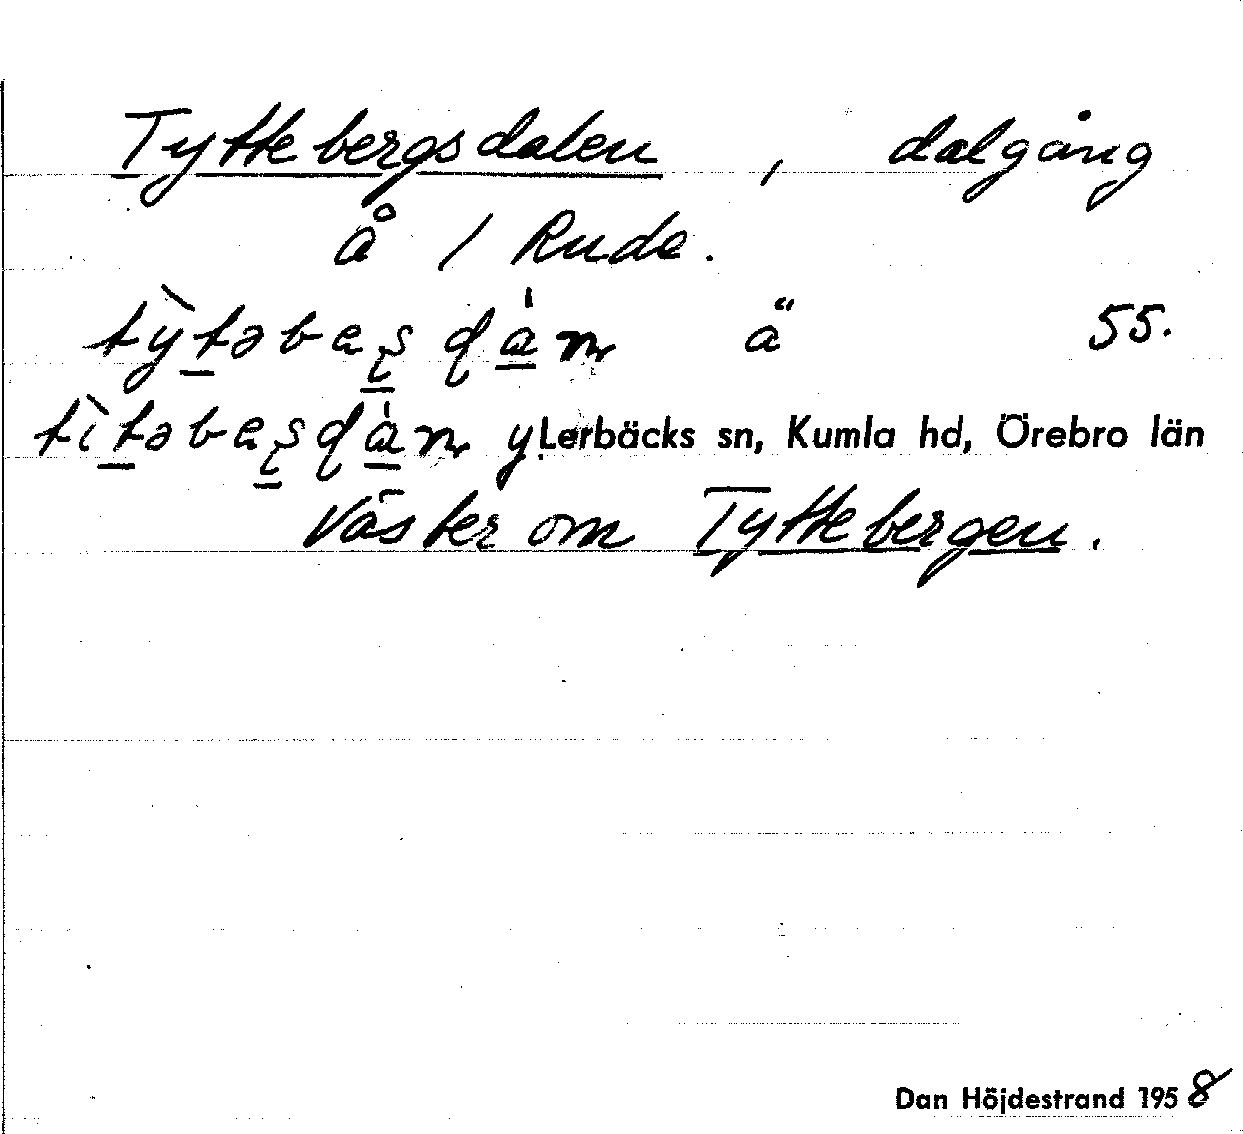 Tyttebergsdalen , dalgång
å 1 Rude.
ä 55.
y Lerbäcks sn, Kumla hd, Örebro län
Väster om Tyttebergen.
Dan Höjdestrand 1958